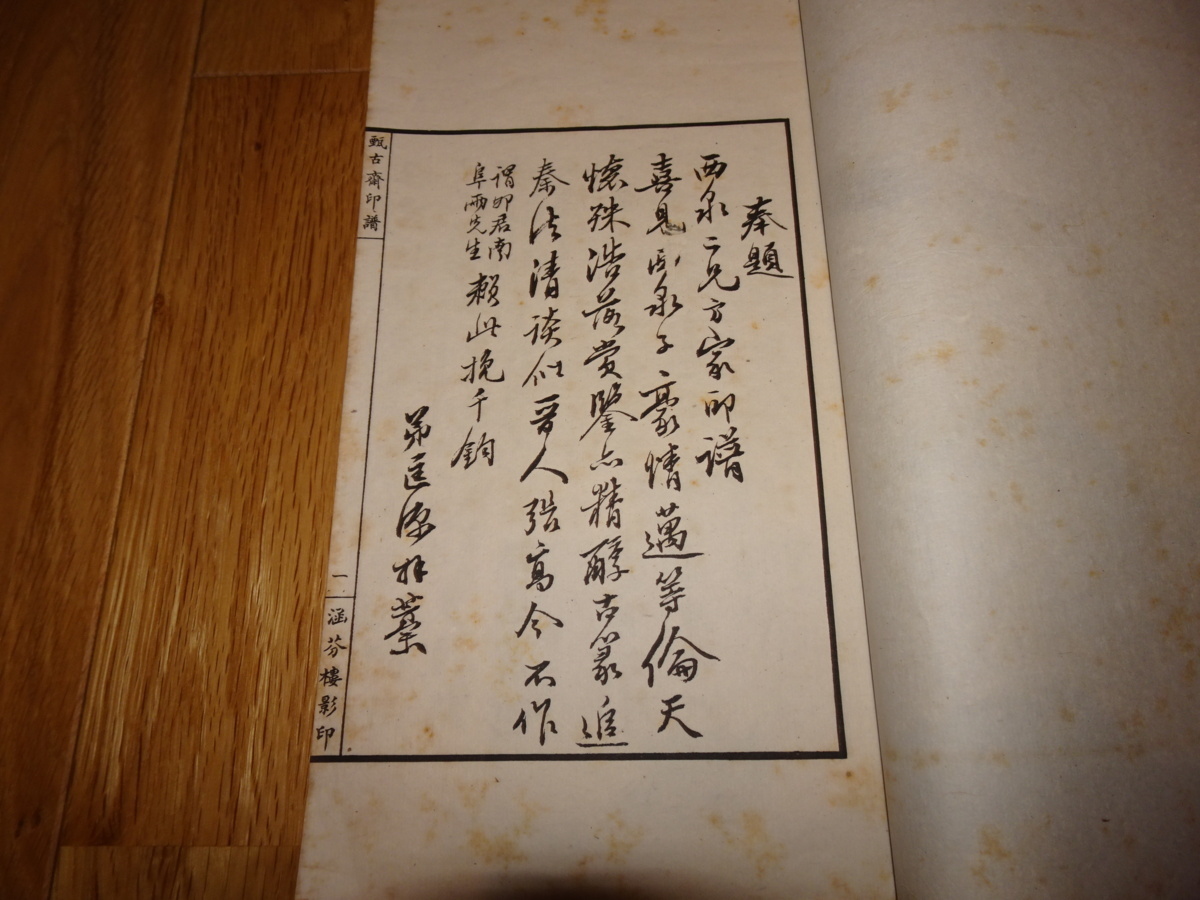 奉題
西泉二兄方家印譜
喜見西泉子豪情邁等倫天
懷殊浩落賞鑒亦精醇古篆追
秦法清談似晉人張高今不作
謂卯君南
阜兩先生
賴此挽千鈞
弟匡源拜藁
甄古齋印譜
一
涵芬樓影印